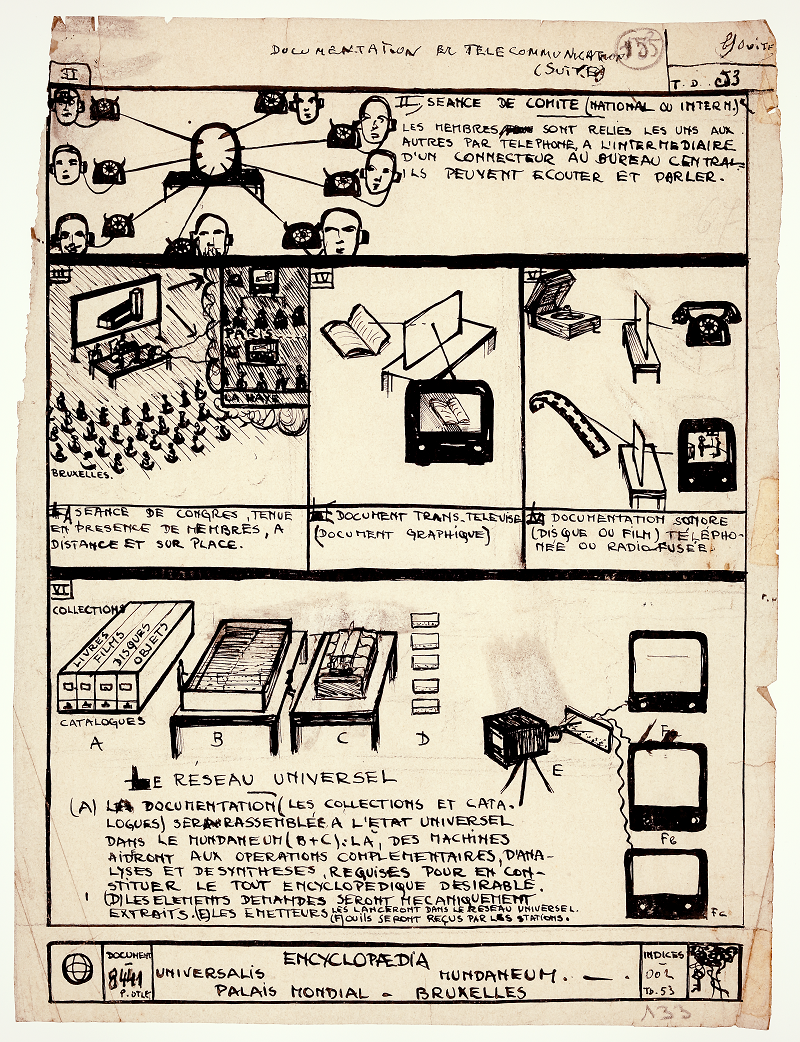 DOCUMENTATION ET TELECOMMUNICATION
(SUITE)
155
T. D. 53
II
II, SEANCE DE COMITE (NATIONAL OU INTERN.)
LES MEMBRES SONT RELIES LES UNS AUX
AUTRES PAR TELEPHONE, A L'INTERMEDIAIRE
D'UN CONNECTEUR AU BUREAU CENTRAL
ILS PEUVENT ECOUTER ET PARLER.
III
PARIS
LA HAYE
BRUXELLES.
IV
V
SEANCE DE CONGRES, TENUE
EN PRESENCE DE MEMBRES, A
DISTANCE ET SUR PLACE.
DOCUMENT TRANS-TELEVISE
(DOCUMENT GRAPHIQUE)
DOCUMENTATION SONORE
(DISQUE OU FILM) TÉLÉPHO-
NÉE OU RADIO FUSÉE.
VI
COLLECTIONS
LIVRES
FILMS
DISQUES
OBJETS
CATALOGUES
A
B
C
D
E
F
FB
FC
LE RÉSEAU UNIVERSEL
(A) LA DOCUMENTATION (LES COLLECTIONS ET CATA-
LOGUES) SERA RASSEMBLÉE A L'ETAT UNIVERSEL
DANS LE MUNDANEUM (B+C): LÀ, DES MACHINES
AIDRONT AUX OPERATIONS COMPLEMENTAIRES, D'ANA-
LYSES ET DE SYNTHESES, REQUISES POUR EN CON-
STITUER LE TOUT ENCYCLOPEDIQUE DESIRABLE.
(D) LES ELEMENTS DEMANDES SERONT MECANIQUEMENT
EXTRAITS. (E) LES EMETTEURS LES LANCERONT DANS LE RESEAU UNIVERSEL.
(F) OU ILS SERONT REÇUS PAR LES STATIONS.
DOCUMENT
8441
P. OTLET
ENCYCLOPÆDIA
UNIVERSALIS MUNDANEUM. —.
PALAIS MONDIAL - BRUXELLES
INDICES
002
TD. 53
133